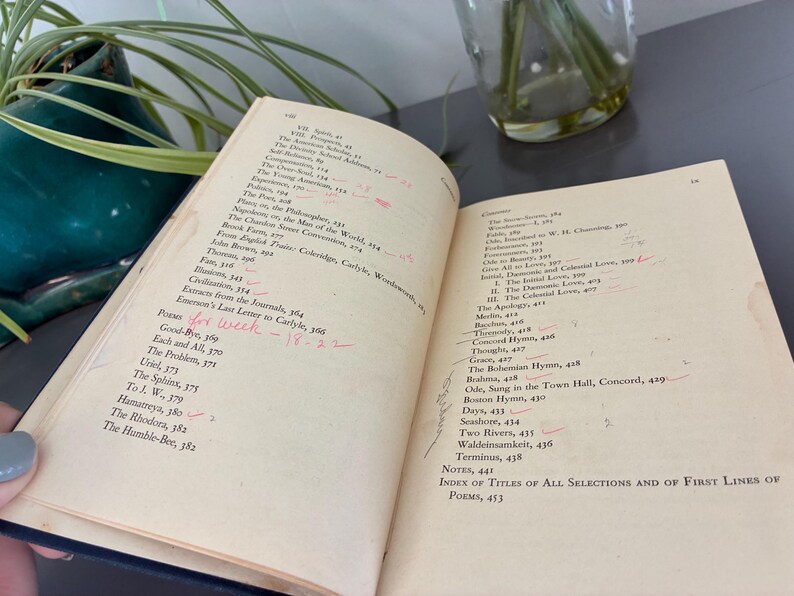 viii
Contents
VII. Spirit, 41
VIII. Prospects, 43
The American Scholar, 51
The Divinity School Address, 71
Self-Reliance, 89
Compensation, 114
The Over-Soul, 134
The Young American, 152
Experience, 170
Politics, 194
The Poet, 208
Plato; or, the Philosopher, 231
Napoleon; or, the Man of the World, 254
The Chardon Street Convention, 274
Brook Farm, 277
From English Traits: Coleridge, Carlyle, Wordsworth, 283
John Brown, 292
Thoreau, 296
Fate, 316
Illusions, 343
Civilization, 354
Extracts from the Journals, 364
Emerson's Last Letter to Carlyle, 366
Poems for week - 18-22
Good-Bye, 369
Each and All, 370
The Problem, 371
Uriel, 373
The Sphinx, 375
To J. W., 379
Hamatreya, 380 2
The Rhodora, 382
The Humble-Bee, 382
Contents
ix
The Snow-Storm, 384
Woodnotes—I, 385
Fable, 389
Ode, Inscribed to W. H. Channing, 390
Forbearance, 393
Forerunners, 393
Ode to Beauty, 395
Give All to Love, 397
Initial, Dæmonic and Celestial Love, 399
I. The Initial Love, 399
II. The Dæmonic Love, 403
III. The Celestial Love, 407
The Apology, 411
Merlin, 412
Bacchus, 416
Threnody, 418
Concord Hymn, 426
Thought, 427
Grace, 427
The Bohemian Hymn, 428
Brahma, 428
Ode, Sung in the Town Hall, Concord, 429
Boston Hymn, 430
Days, 433
Seashore, 434
Two Rivers, 435 2
Waldeinsamkeit, 436
Terminus, 438
Notes, 441
Index of Titles of All Selections and of First Lines of
Poems, 453